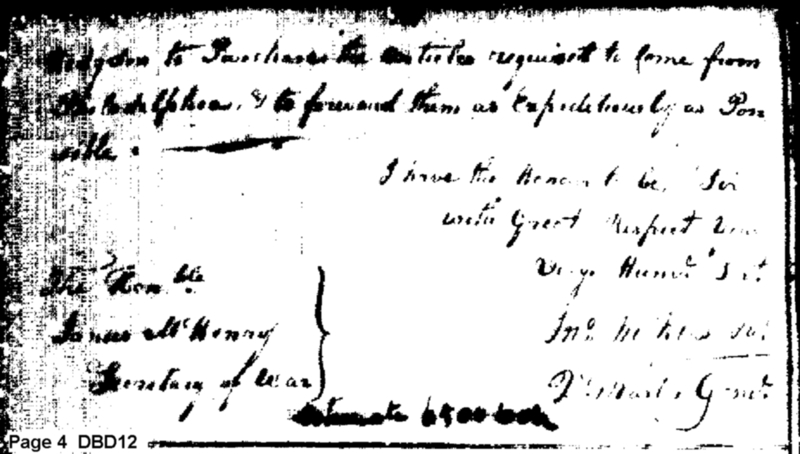 to Purchase the articles requisit to Come from
Philadelphia, & to forward them as Expeditiously as Pos
sible.
I have the Honour to be, Sir
with Great Respect Your
Very Humle Svt.
The Honble
James McHenry
Secretary of War
Jno
Estimate
Page 4 DBD12